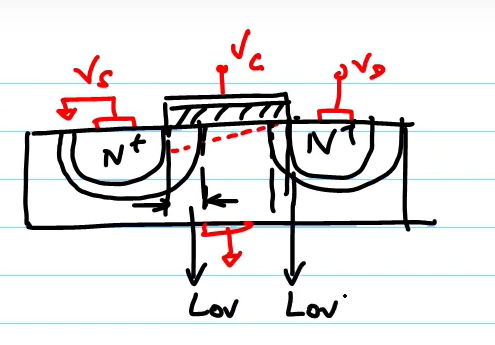 V_G
V_S V_D
N+ N+
Lov Lov